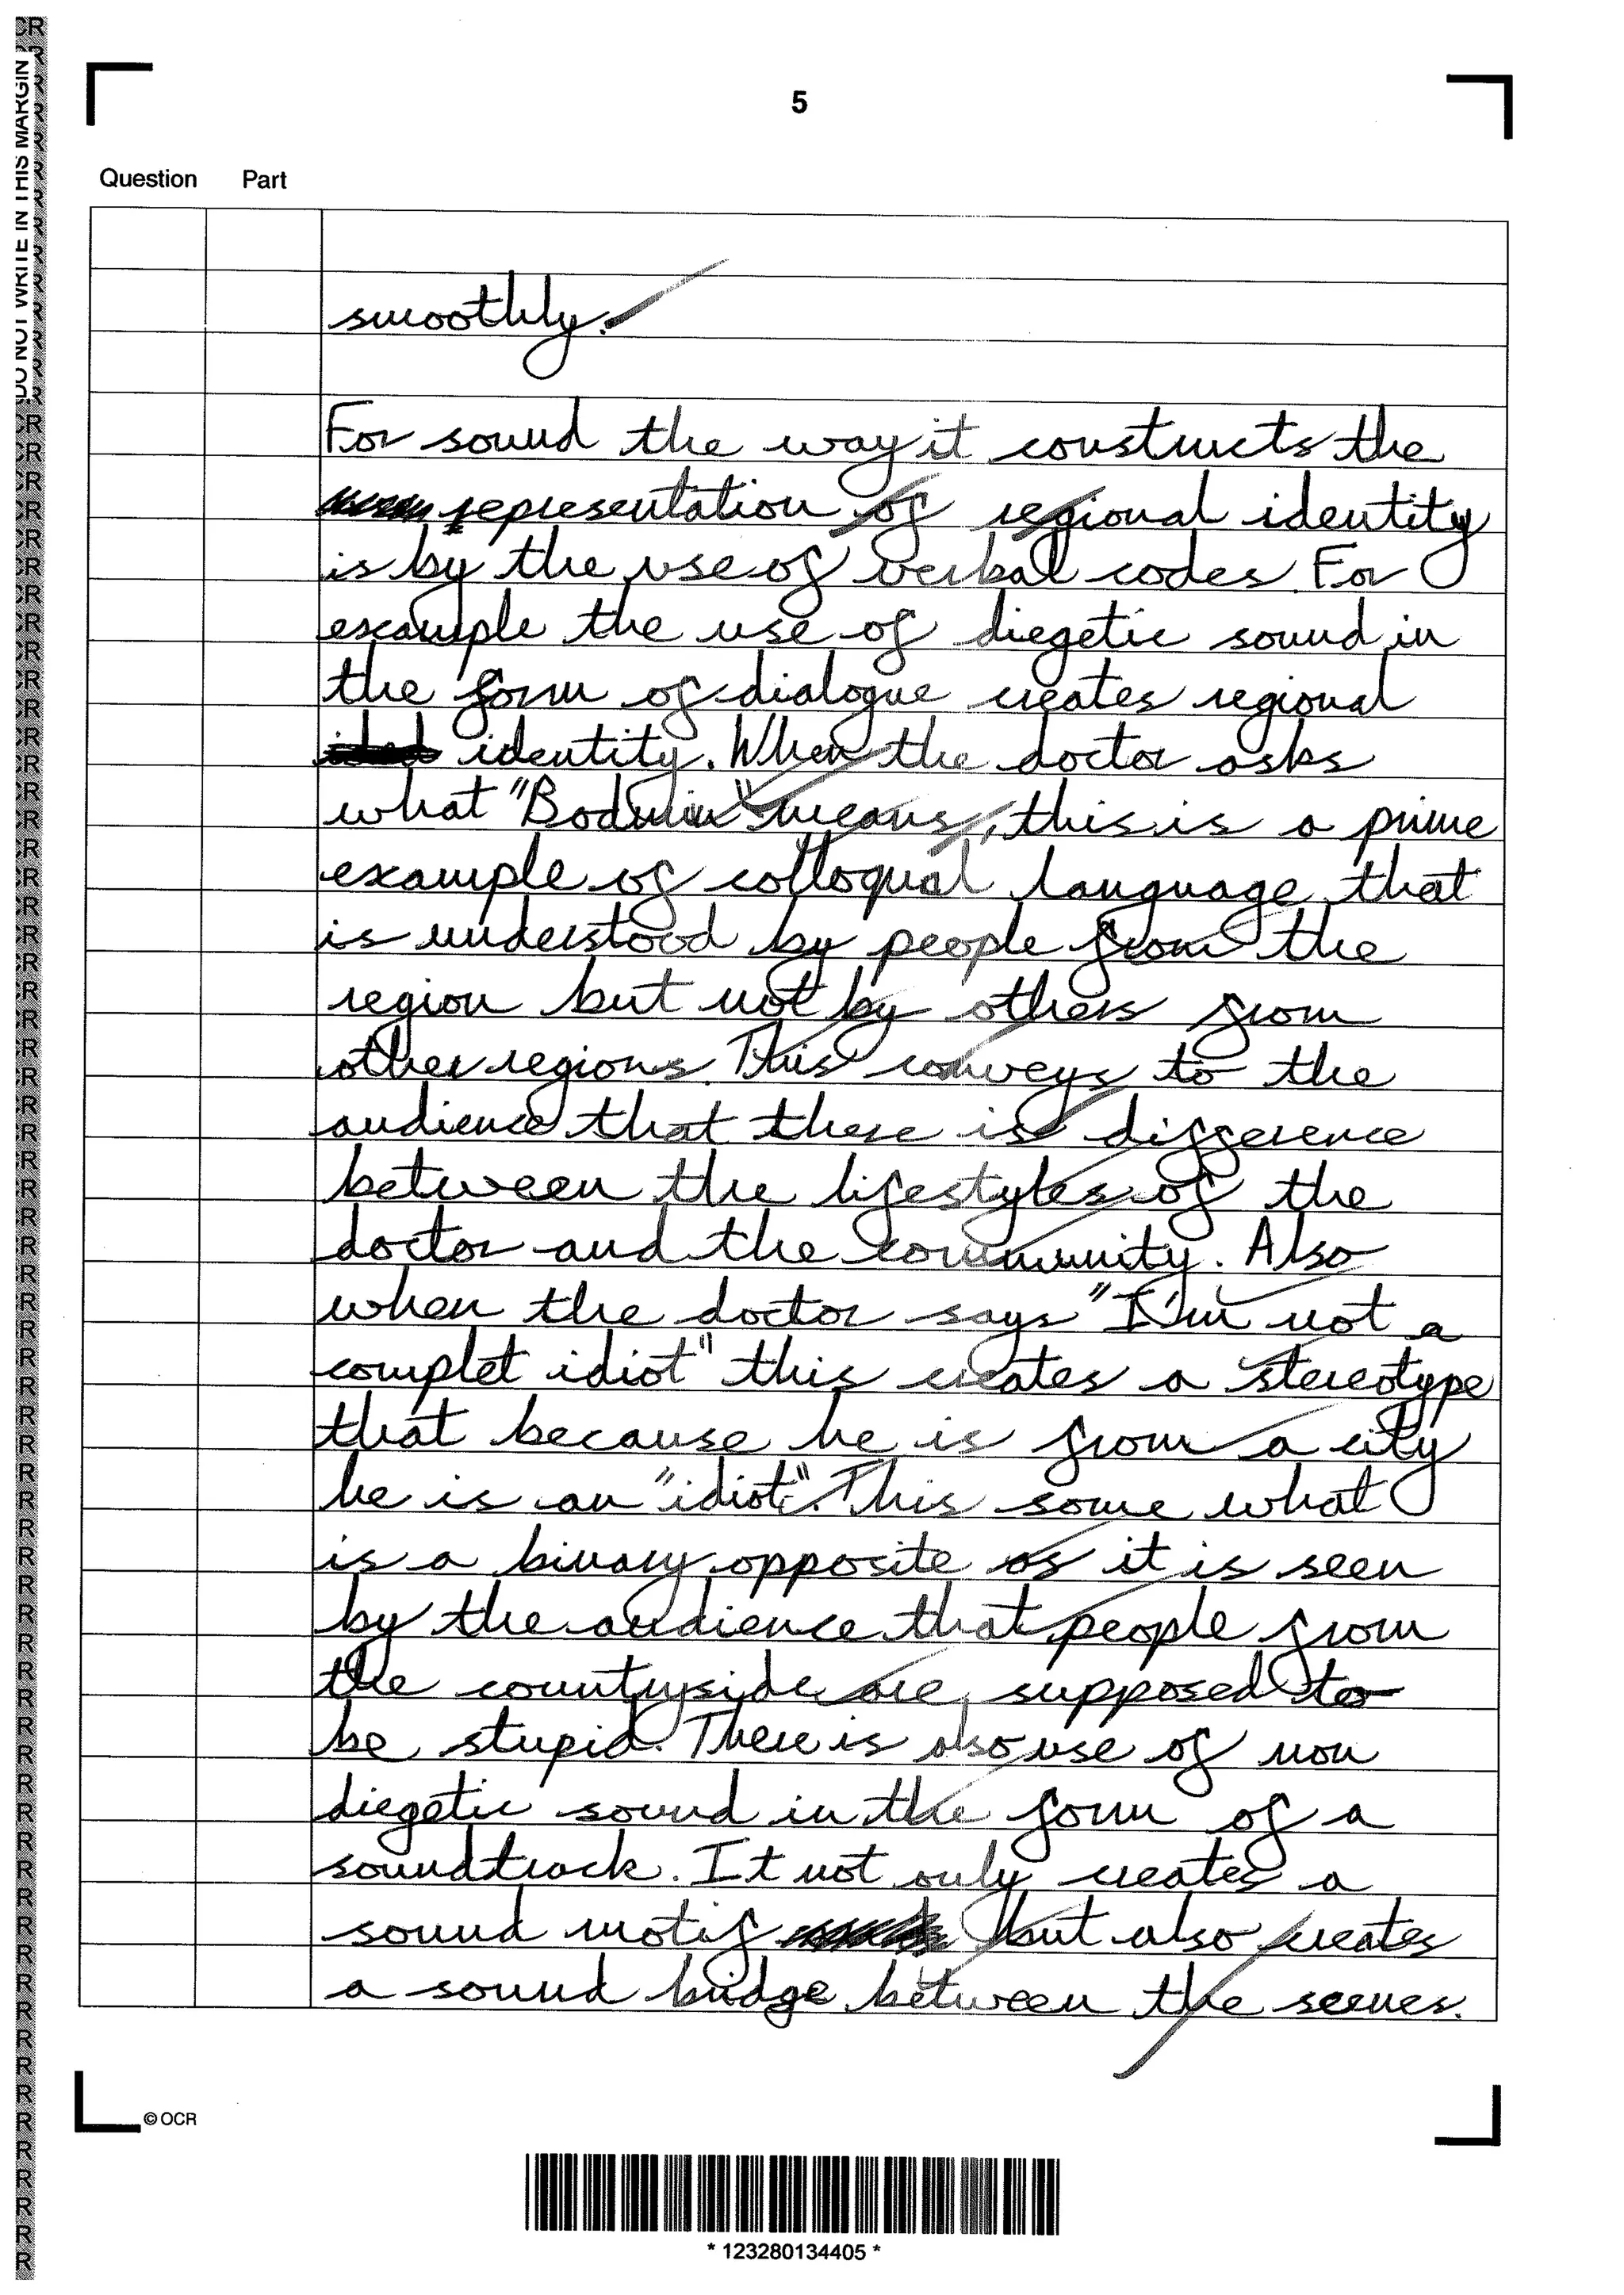 5
Question Part
smoothly.
For sound the way it constructs the
representation of regional identity
is by the use of verbal codes. For
example the use of diegetic sound in
the form of dialogue creates regional
identity. When the doctor asks
what "Bodmin" means, this is a prime
example of colloqual language that
is understood by people from the
region but not by others from
other regions. This conveys to the
audience that there is difference
between the lifestyles of the
doctor and the community. Also
when the doctor says "I'm not a
complet idiot" this creates a stereotype
that because he is from a city
he is an "idiot". This some what
is a binary opposite as it is seen
by the audience that people from
the countryside are supposed to
be stupid. There is also use of non
diegetic sound in the form of a
soundtrack. It not only creates a
sound motif but also creates
a sound bridge between the scenes.
© OCR
* 123280134405 *
DO NOT WRITE IN THIS MARGIN